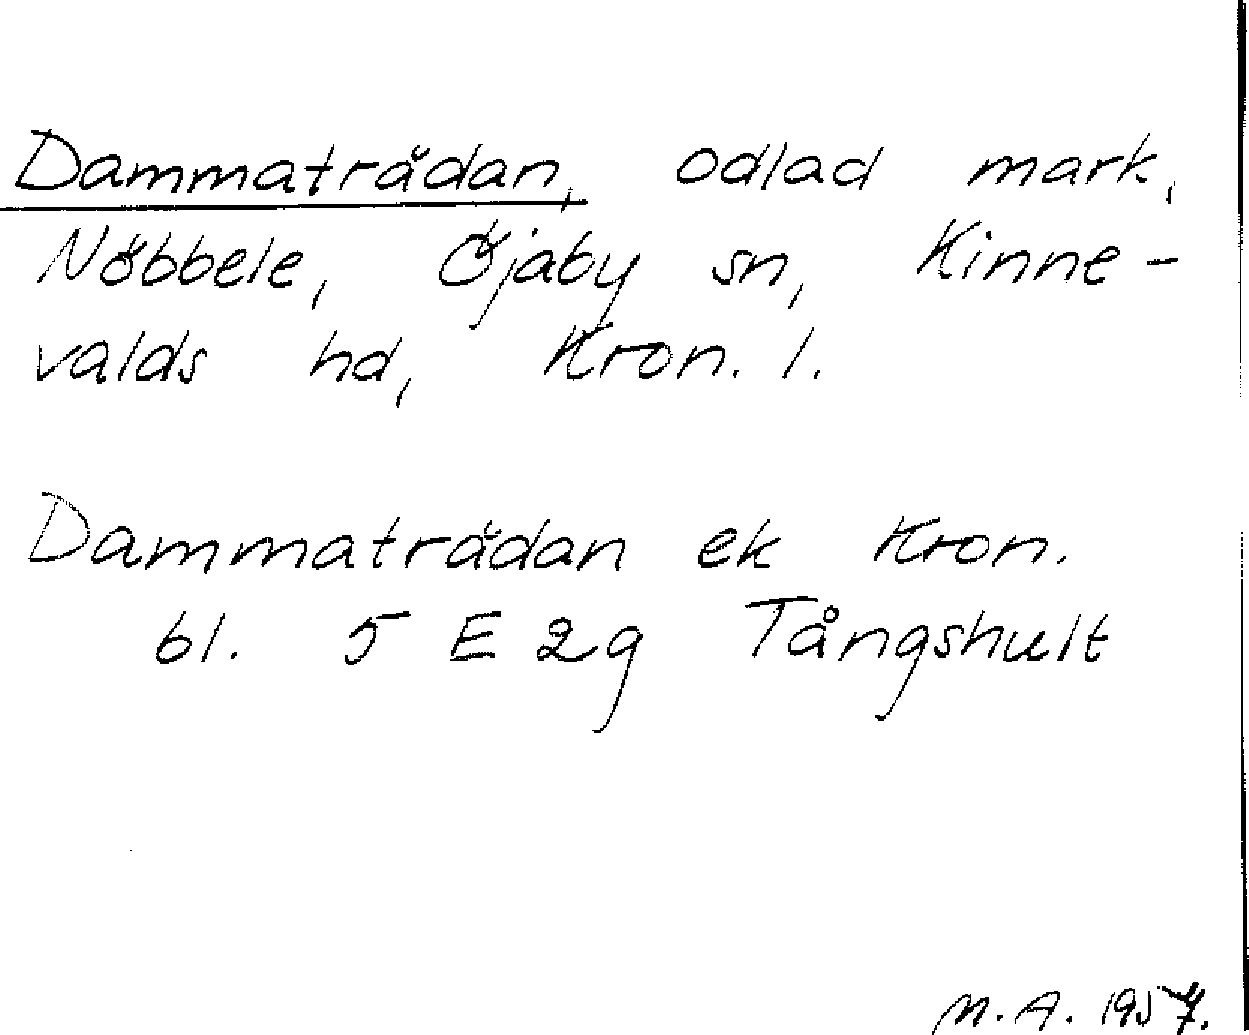 Dammaträdan, odlad mark,
Nöbbele, Öjaby sn, Kinne-
valds hd, Kron. l.
Dammaträdan ek Kron.
bl. 5 E 2g Tångshult
M.A. 1957.